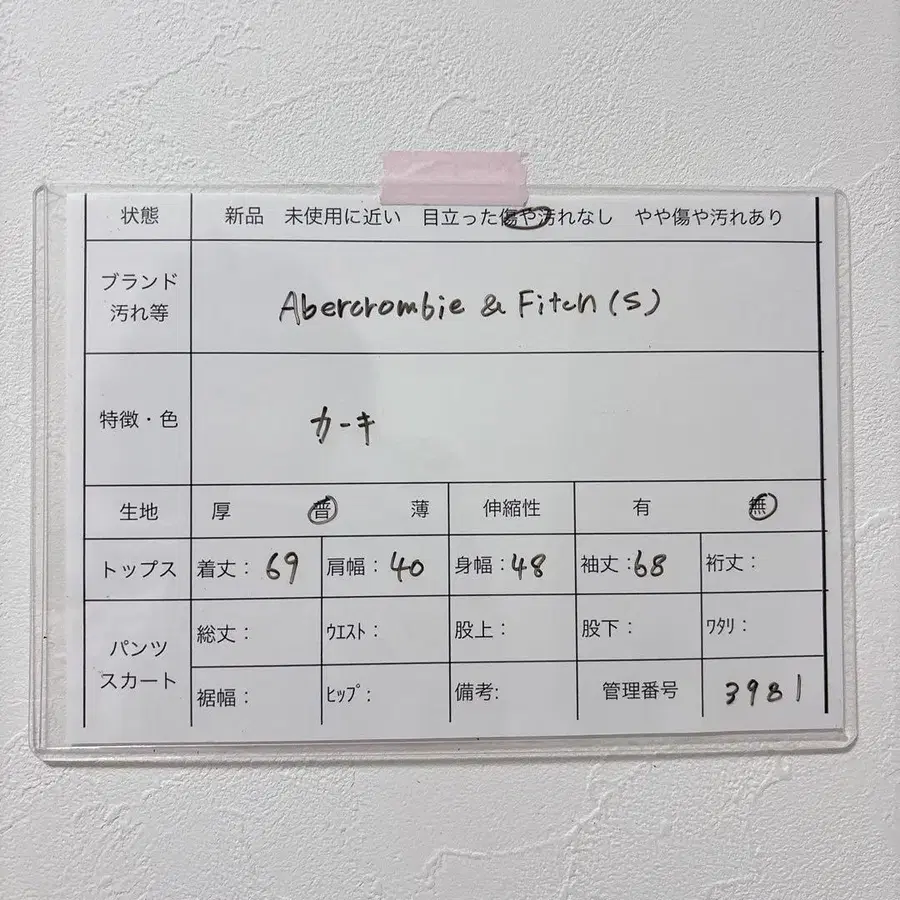 状態 新品 未使用に近い 目立った傷や汚れなし やや傷や汚れあり
ブランド
汚れ等
Abercrombie & Fitch (S)
特徴・色 カーキ
生地 厚 普 薄 伸縮性 有 無
トップス 着丈： 69 肩幅： 40 身幅：48 袖丈：68 裄丈：
パンツ
スカート
総丈： ウエスト： 股上： 股下： ワタリ：
裾幅： ヒップ： 備考: 管理番号 3981